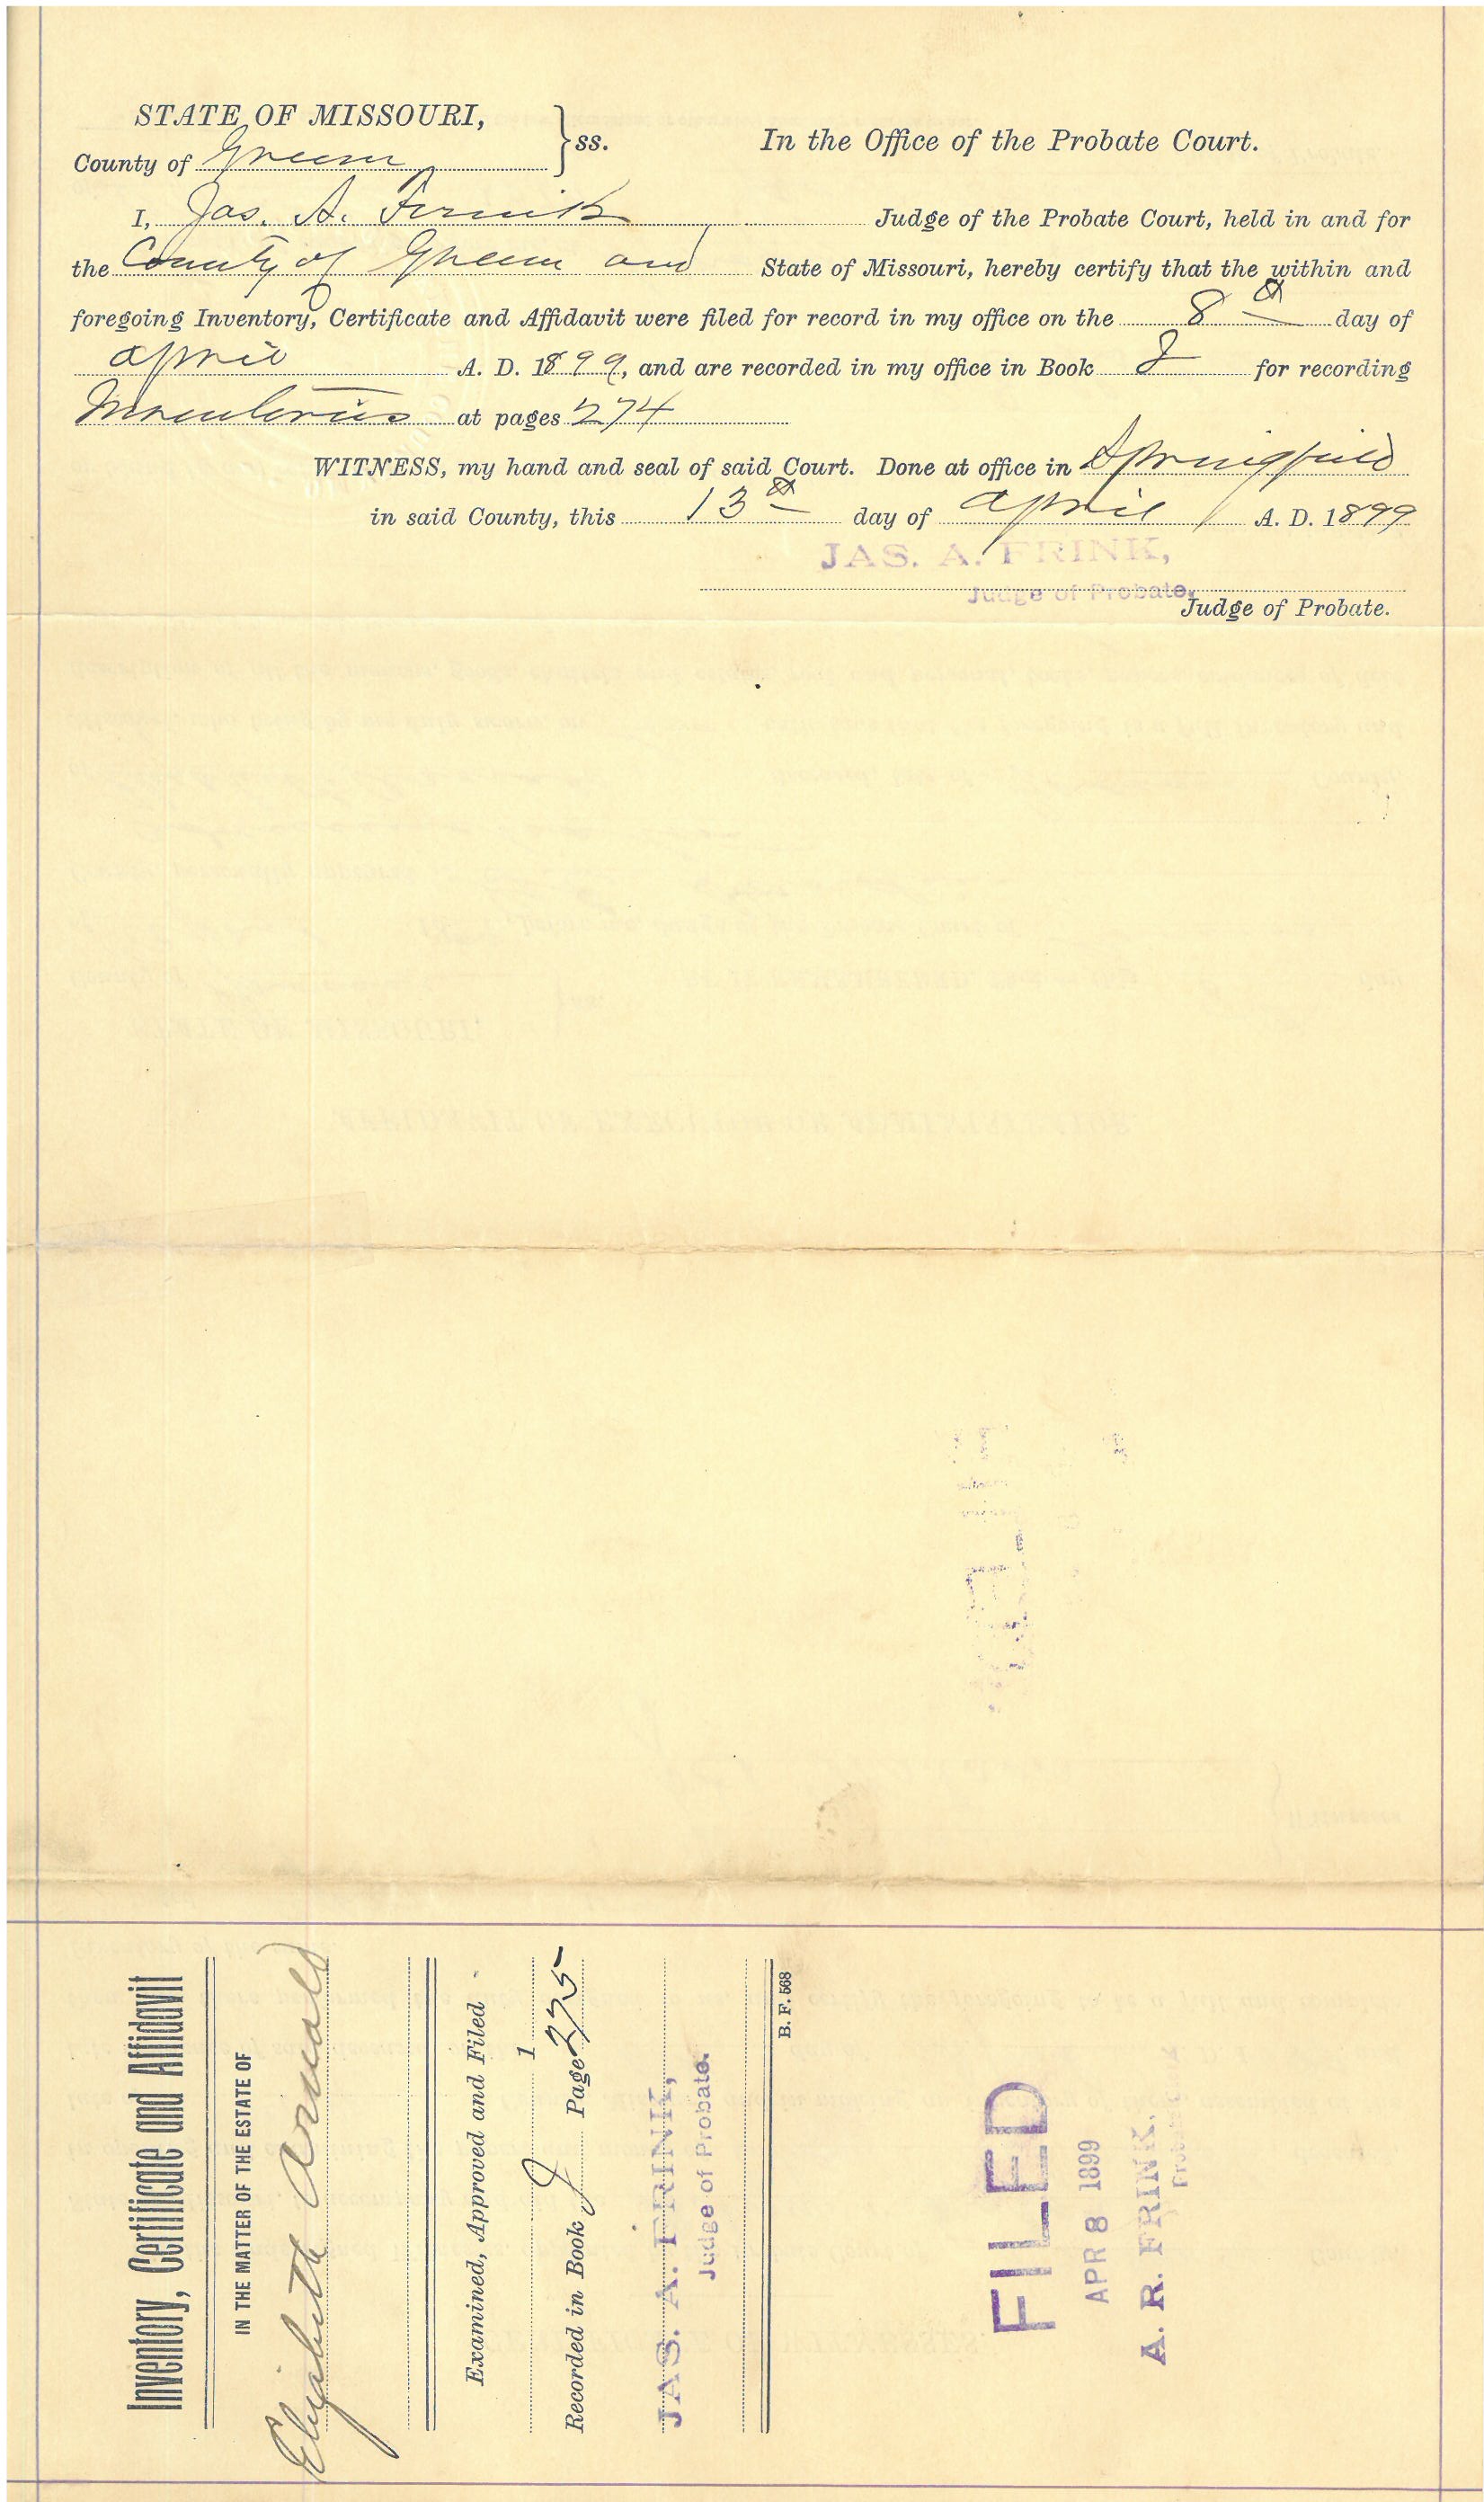 STATE OF MISSOURI,
County of Greene } ss. In the Office of the Probate Court.
I, Jas. A. Frink Judge of the Probate Court, held in and for
the County of Greene and State of Missouri, hereby certify that the within and
foregoing Inventory, Certificate and Affidavit were filed for record in my office on the 8th day of
April A. D. 1899, and are recorded in my office in Book J for recording
Inventories at pages 274
WITNESS, my hand and seal of said Court. Done at office in Springfield
in said County, this 13th day of April A. D. 1899
JAS. A. FRINK,
Judge of Probate.
Judge of Probate.
Inventory, Certificate and Affidavit
IN THE MATTER OF THE ESTATE OF
Elizabeth Arnold
Examined, Approved and Filed
1
Recorded in Book J Page 275
JAS. A. FRINK,
Judge of Probate.
B. F. 568
FILED
APR 8 1899
A. R. FRINK,